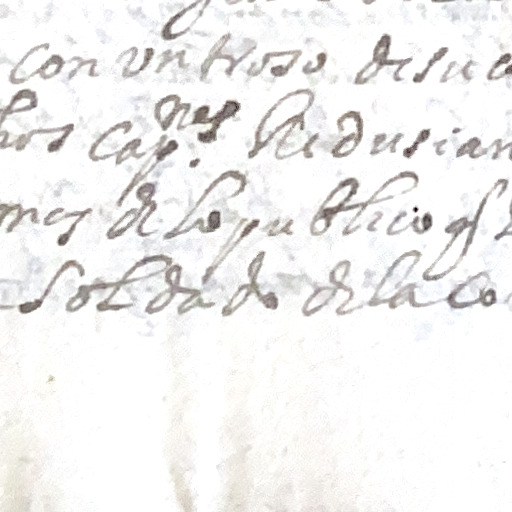 con vn troso de su c
hos cap.nes
mas de lo publico q
soldado de la co